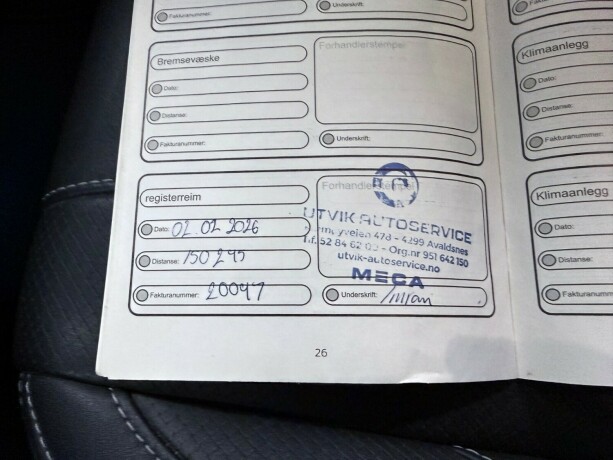 Fakturanummer:
Underskrift:
Bremsevæske
Forhandlerstempel
Dato:
Distanse:
Fakturanummer:
Underskrift:
Klimaanlegg
Dato:
Distanse:
Fakturanummer:
registerreim
Forhandlerstempel
Dato: 02.02 2026
UTVIK AUTOSERVICE
478 - 4299 Avaldsnes
Distanse: 150 245
Tlf. 52 84 62 00 - Org.nr 951 642 150
utvik-autoservice.no
MECA
Fakturanummer: 20047
Underskrift:
Klimaanlegg
Dato:
Distanse:
Fakturanumm
26